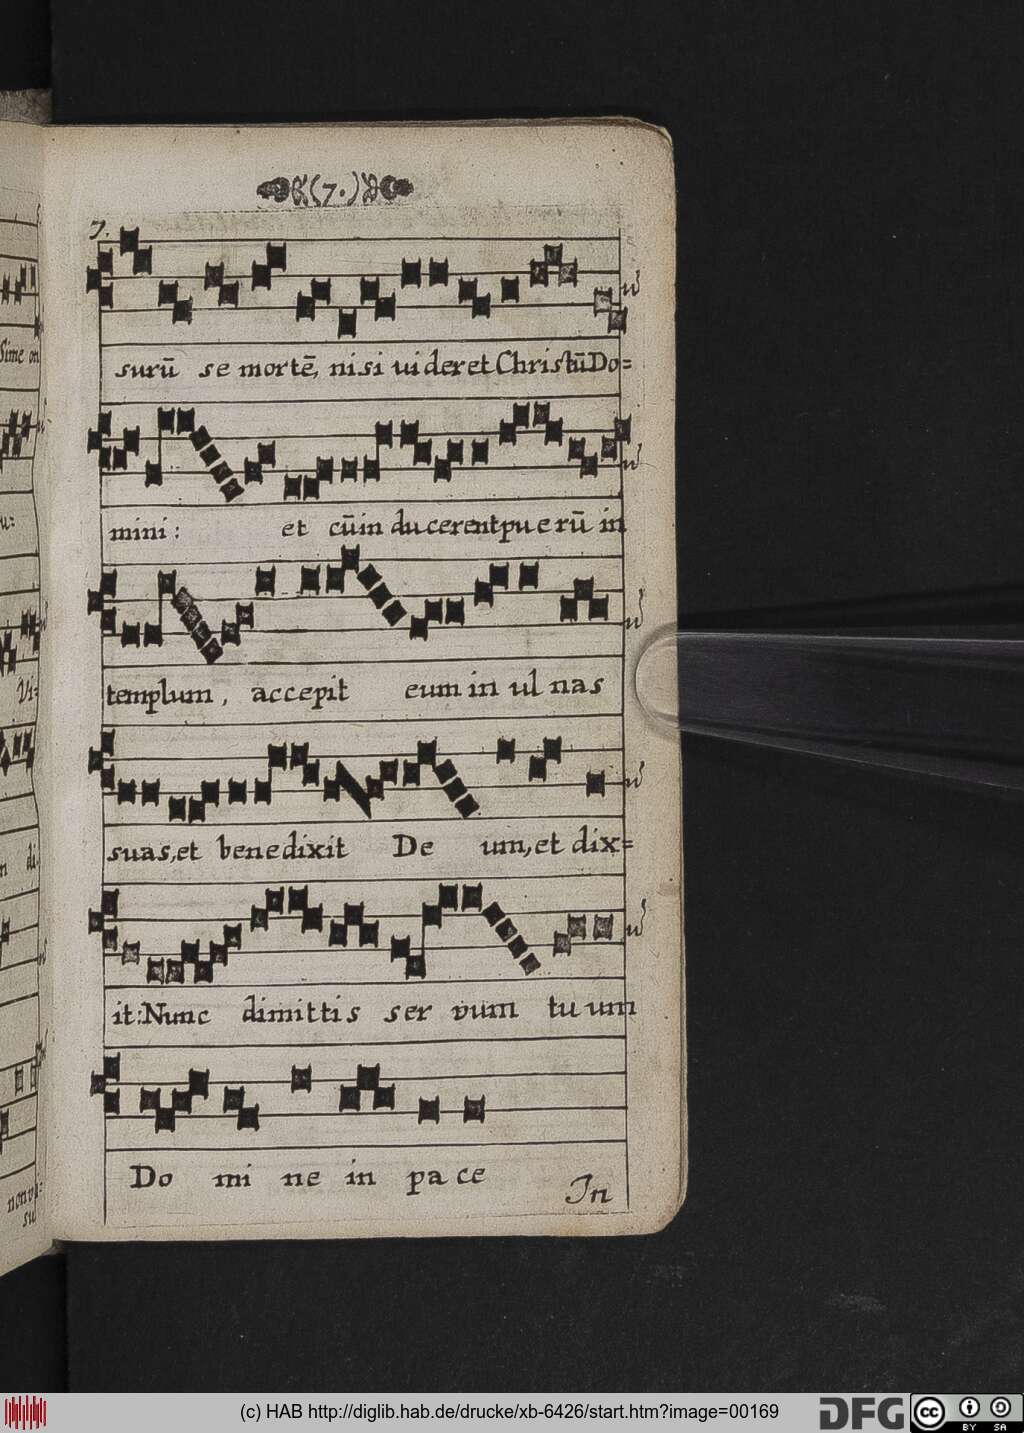 (7.)
7.
surū se mortē, nisi uideret ChristūDo=
mini: et cūin ducerentpuerū in
templum, accepit eum in ulnas
suas, et benedixit Deum, et dix=
it: Nunc dimittis servum tuum
Domine in pace
In
(c) HAB http://diglib.hab.de/drucke/xb-6426/start.htm?image=00169
DFG
cc BY SA